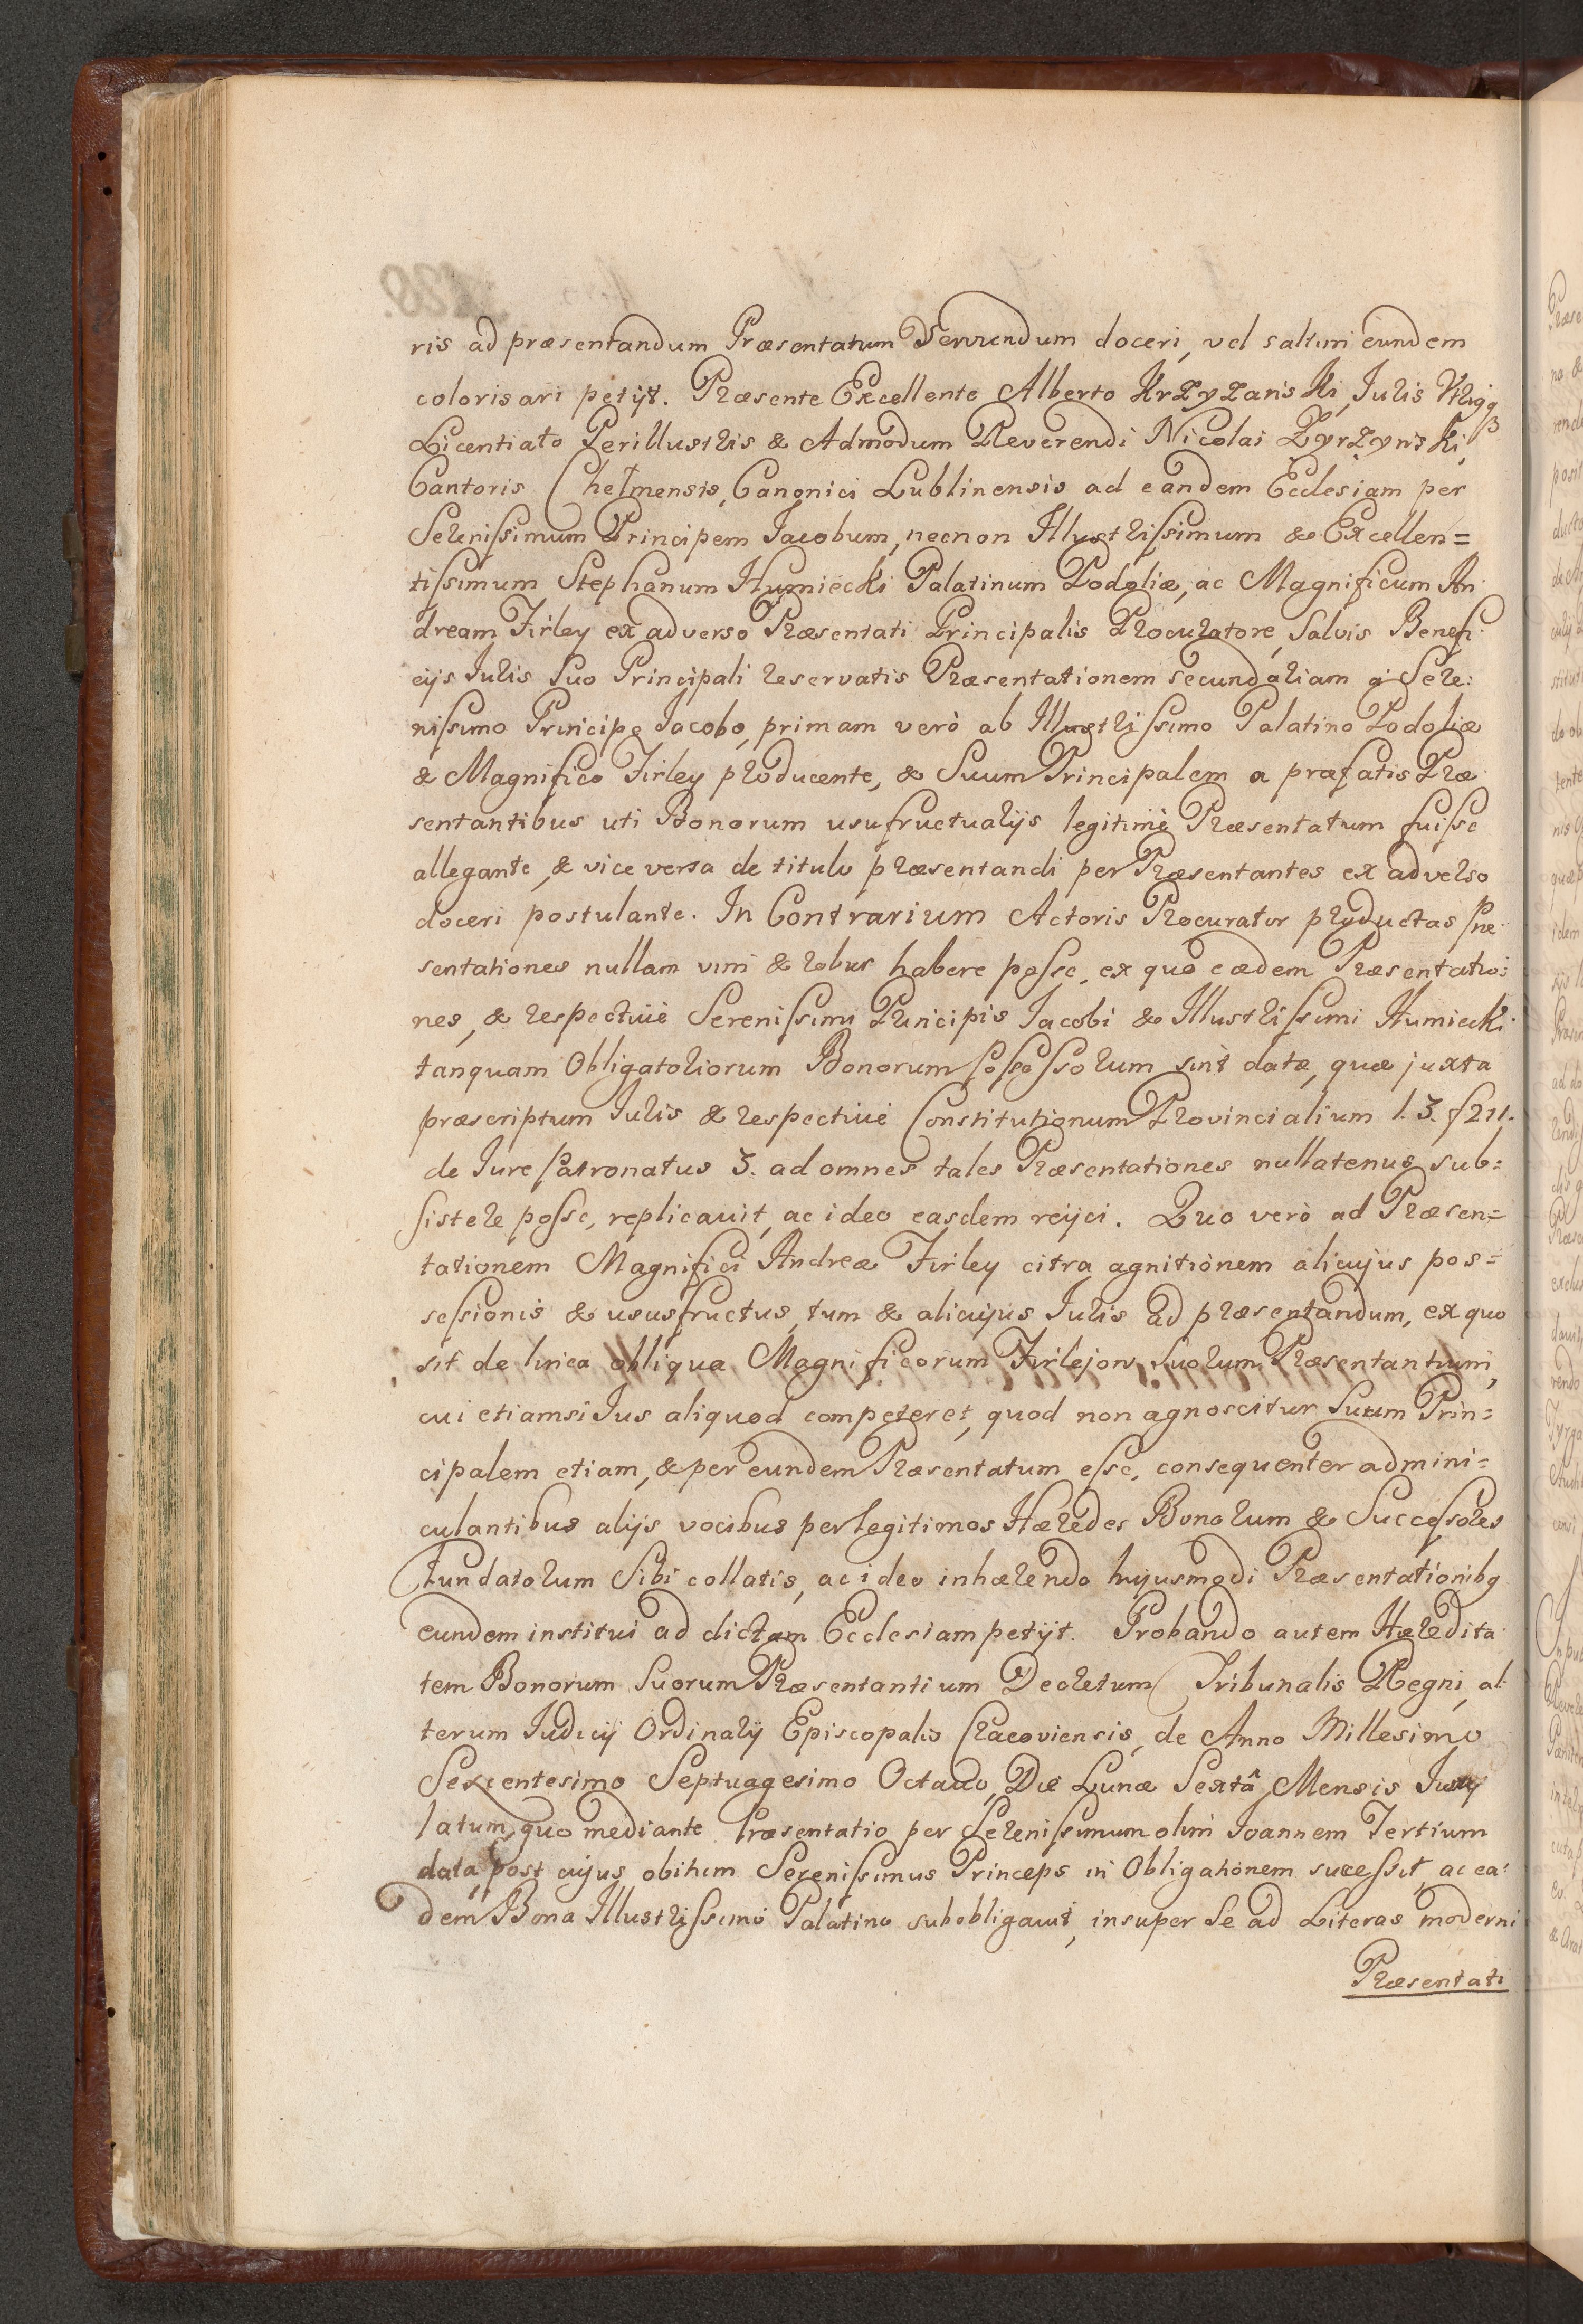 ris ad præsentandum Præsentatum Deferendum doceri, vel saltim eundem
colorisari petijt. Præsente Excellente Alberto Krzyzanski, Juris Vtriq3
Licentiato Perillustris & Admodum Reverendi Nicolai Zyrzynski,
Cantoris Chełmensis, Canonici Lublinensis ad eandem Ecclesiam per
Serenissimum Principem Jacobum, necnon Illustrissimum & Excellen=
tissimum Stephanum Humiecki Palatinum Podoliæ, ac Magnificum An
dream Firley ex adverso Præsentati Principalis Procuratore, Salvis Benefi
cijs Juris Suo Principali reservatis Præsentationem secundariam a Sere:
nissimo Principe Jacobo, primam verò ab Illustrissimo Palatino Podoliæ
& Magnifico Firley producente, & Suum Principalem a præfatis Præ
sentantibus uti Bonorum usufructuarijs legitimè Præsentatum fuisse
allegante, & vice versa de titulo præsentandi per Præsentantes ex adverso
doceri postulante. In Contrarium Actoris Procurator productas Præ
sentationes nullam vim & robur habere posse, ex quo eædem Præsentatio:
nes, & respectivè Serenissimi Principis Jacobi & Illustrissimi Humiecki
tanquam Obligatoriorum Bonorum Possessorum sint datæ, quæ juxta
præscriptum Juris & respectivè Constitutionum Provincialium l. 3. f 211.
de Jure Patronatus 3. ad omnes tales Præsentationes nullatenus sub=
sistere posse, replicavit, ac ideo easdem reijci. Quo verò ad Præsen=
tationem Magnifici Andreæ Firley citra agnitionem alicujus pos=
sessionis & ususfructus, tum & alicujus Juris ad præsentandum, ex quo
sit de linea obliqua Magnificorum Firlejow Suorum Præsentantium,
cui etiamsi Jus aliquod competeret, quod non agnoscitur Suum Prin=
cipalem etiam, & per eundem Præsentatum esse, consequenter admini=
culantibus alijs vocibus per legitimos Hæredes Bonorum & Successores
Fundatorum Sibi collatis, ac ideo inhærendo hujusmodi Præsentationibq
eundem institui ad dictam Ecclesiam petijt. Probando autem Hæredita
tem Bonorum Suorum Præsentantium Decretum Tribunalis Regni, al
terum Judicij Ordinarij Episcopalis Cracoviensis, de Anno Millesimo
Sexcentesimo Septuagesimo Octavo, Die Lunæ Sextâ Mensis Junij
latum, quo mediante Præsentatio per Serenissimum olim Joannem Tertium
data, post cujus obitum Serenissimus Princeps in Obligationem sucessit, ac ea:
dem Bona Illustrissimo Palatino subobligavit, insuper Se ad Literas moderni
Præsentati